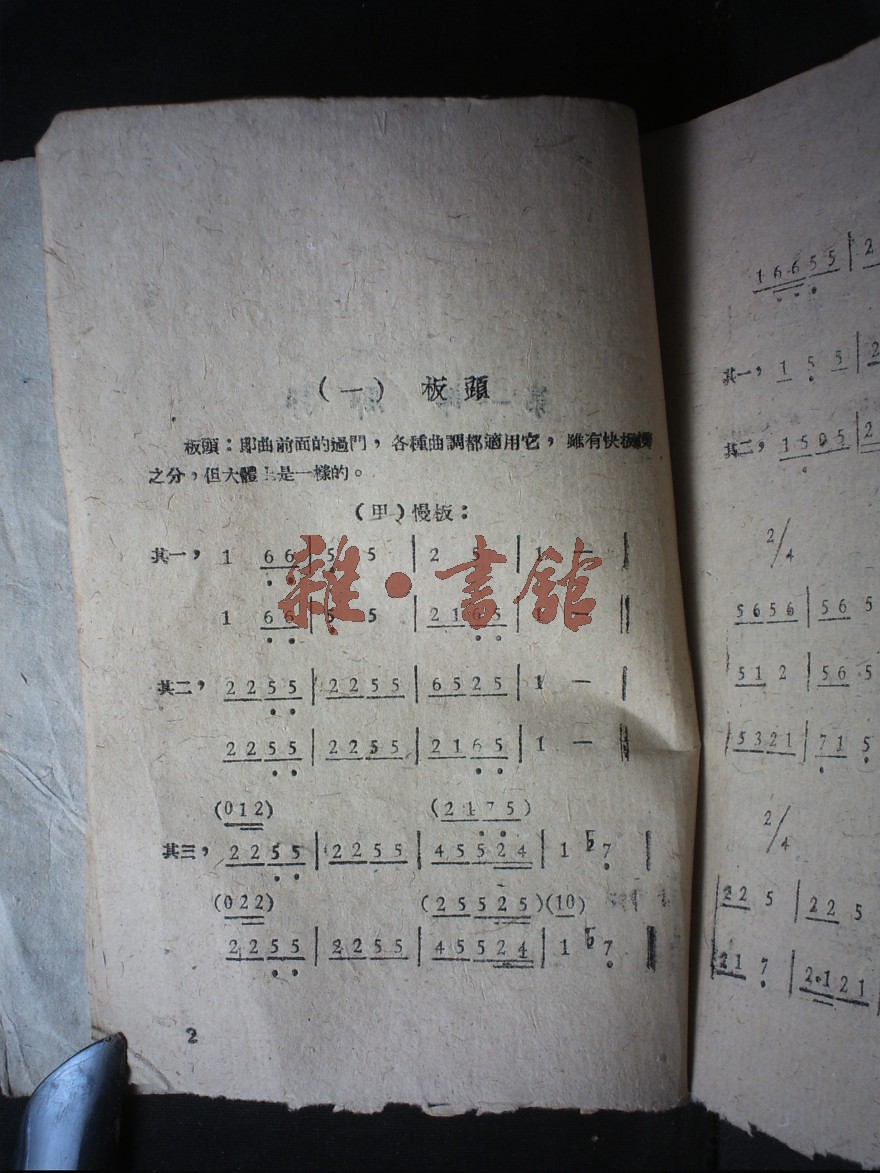 （一） 板頭
板頭：即曲前面的過門，各種曲調都適用它，雖有快板慢
之分，但大體上是一樣的。
（甲）慢板：
其一， 1 66 | 5 5 | 2 5 | 1 — |
1 66 | 5 5 | 2165 | 1 — ‖
其二， 2255 | 2255 | 6525 | 1 — |
2255 | 2255 | 2165 | 1 — ‖
(012) (2175)
其三， 2255 | 2255 | 45524 | 1 ♭7 |
(022) (25525)(10)
2255 | 2255 | 45524 | 1 ♭7 ‖
2
雜·書館
16655 | 2
其一， 1 5 5 | 2
其二， 1505 | 2
2/4
5656 | 56 5
51 2 | 56 5
| 5321 | 71 5
2/4
| 22 5 | 22 5
| 21 7 | 2·121